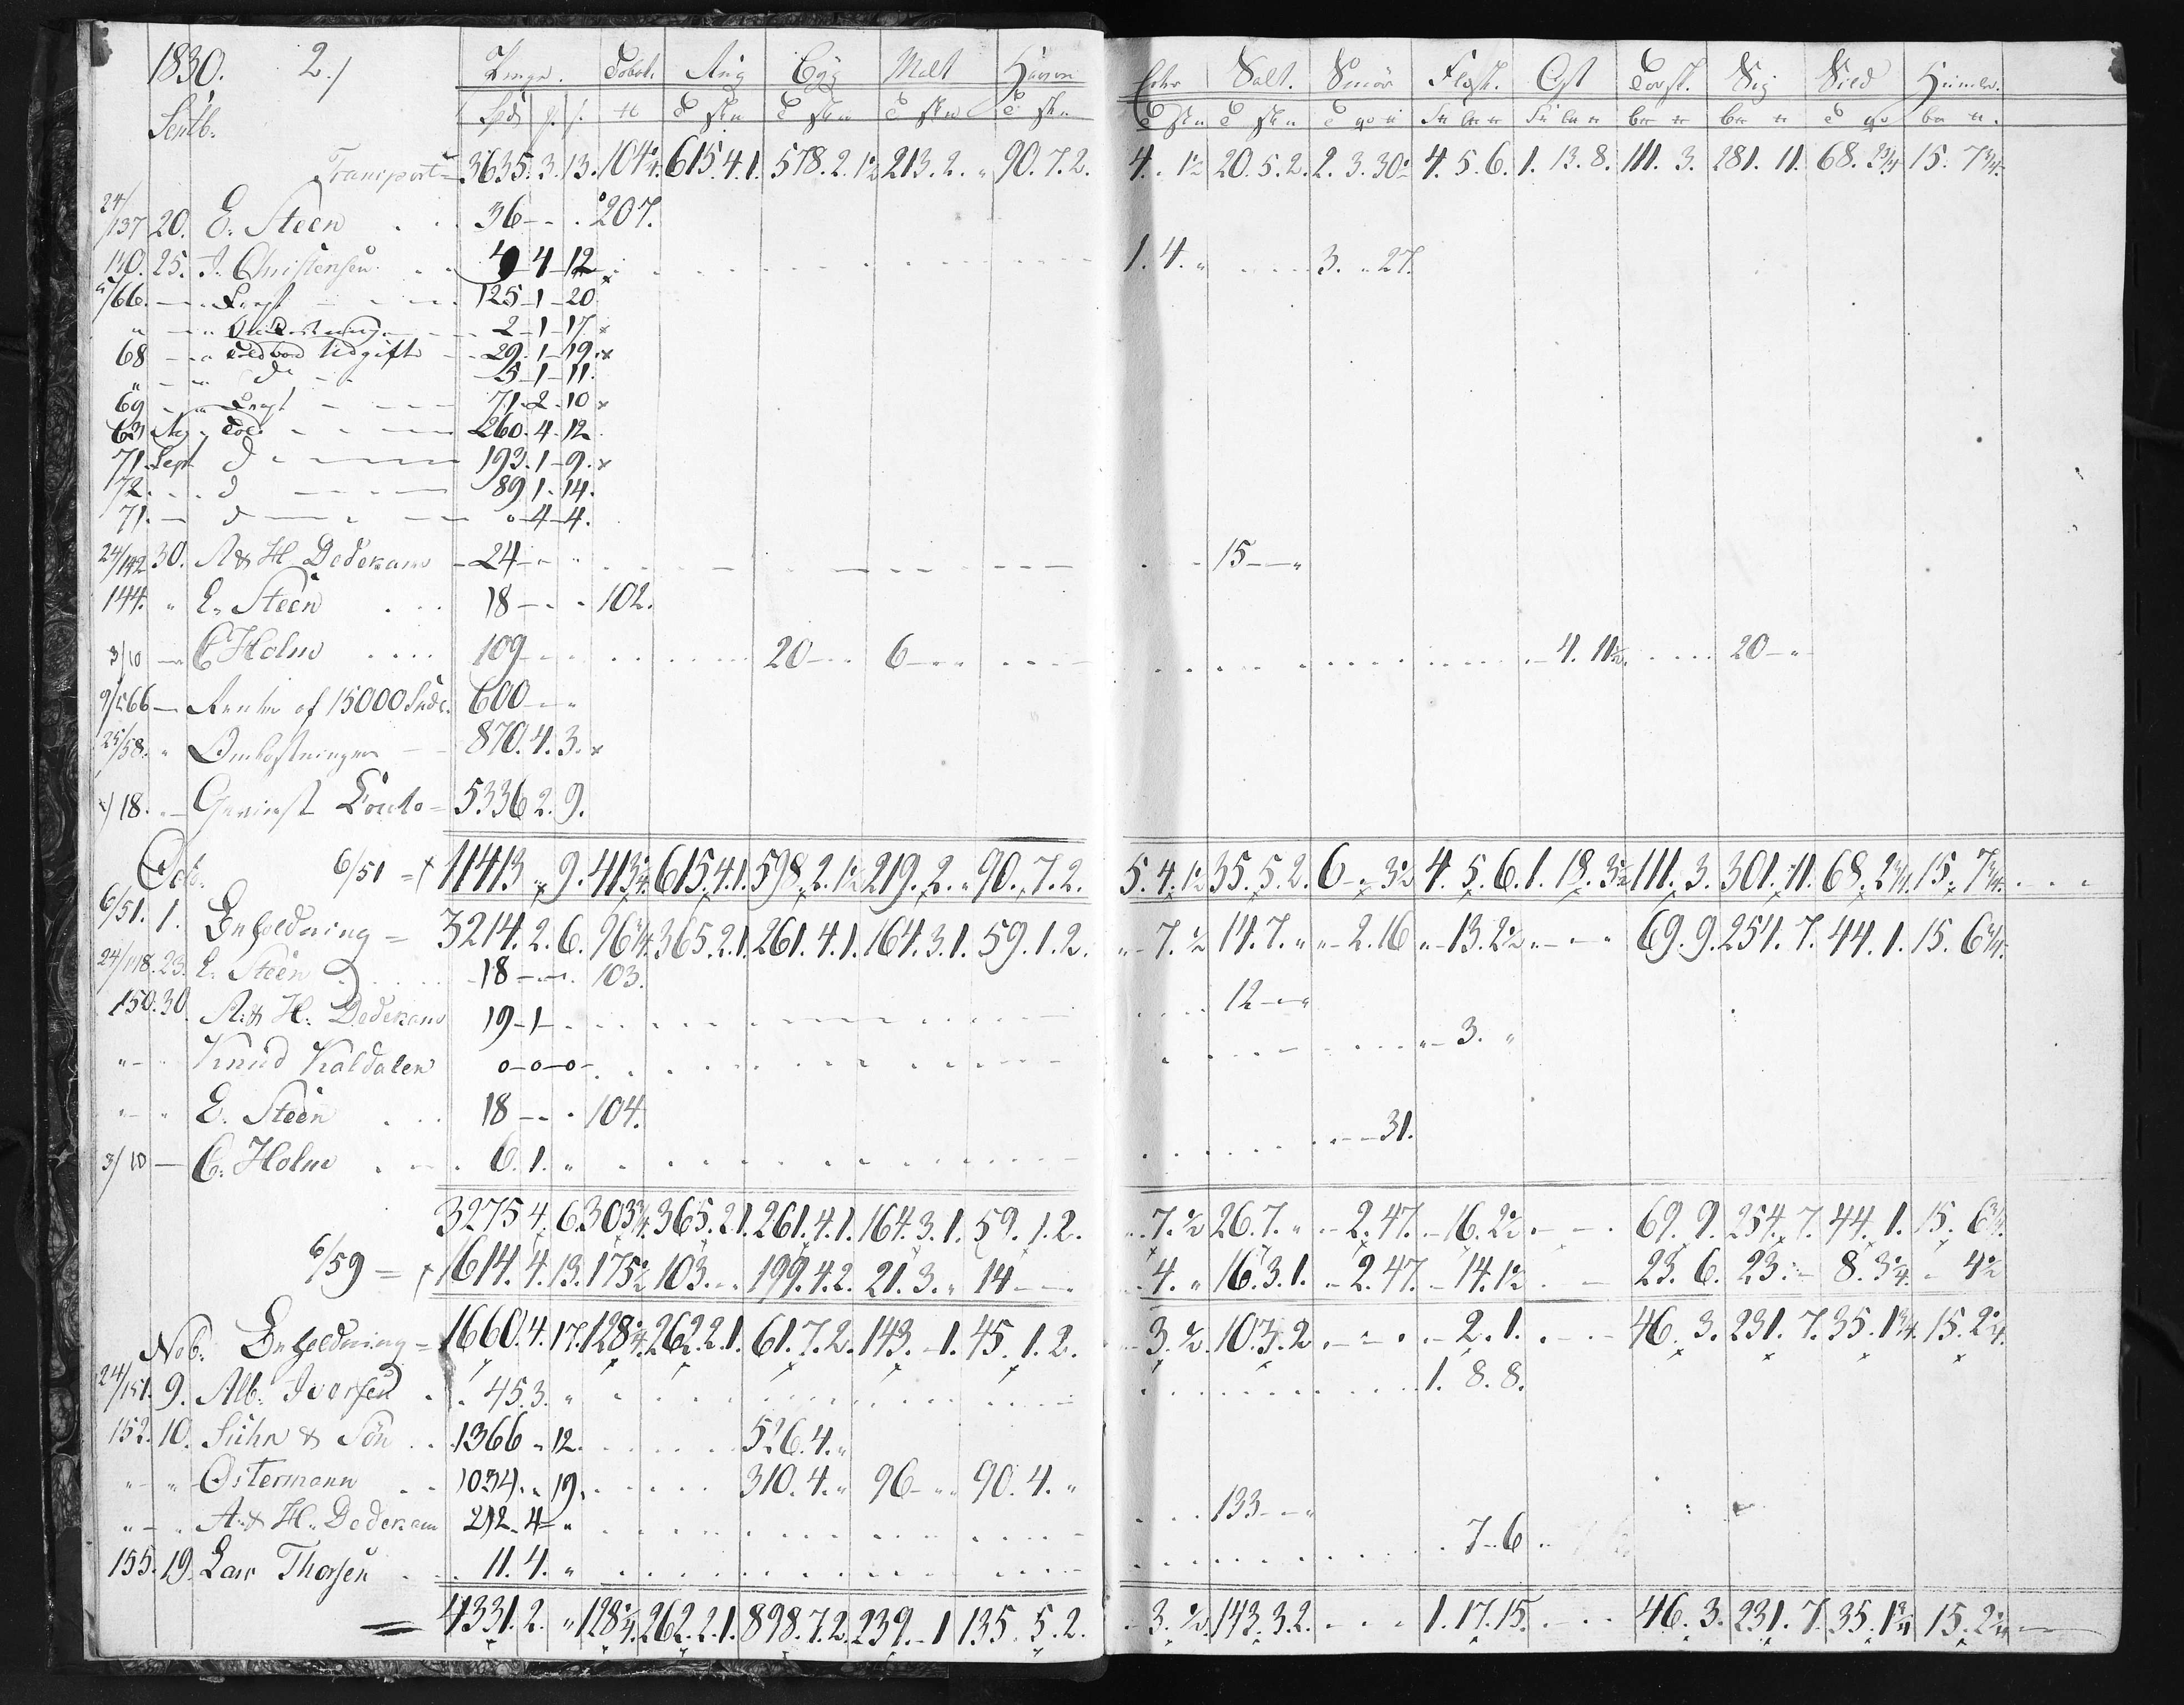 1830. 2.) Penge. Tobak. Rug Byg Malt Havre Erter Salt. Smör Flesk. Ost Torsk. Sig Sild Humle.
Septb. Spd
Transport = 3635. 3. 13. 104¼. 615. 4. 1. 578. 2. 1½ 213. 2. „ 90. 7. 2. 4. . 1½ 20. 5. 2. 2. 3. 30½ 4. 5. 6. 1. 13. 8. 111. 3. 281. 11. 68. 2¾ 15. 7¾.
24/137 20. E. Steen . . 36 - - . 207.
140. 25. J. Christensen . . 9 4 - 12 1. 4. „ 3. „ 27.
/66. - „ Fragt 125 - 1 - 20
„ - „ 2 - 1 - 17 x
68 - „ Udgift 29. 1 - 19. x
„ - „ do 5 - 1 - 11.
69 - „ Fragt 71. 2. 10 x
63 Aug. Told 260. 4. 12.
71. Sept. do 193. 1 - 9. x
72. . . d 89 1. 14.
71. - d „ - 4 - 4.
24/142 30. A & H Dedekam - 24 - „ 15 - - „
144. „ E. Steen . . . 18 - . . 102.
3/10 - C Holm . . . . 109 20 - - 6 - . . 4. 11½. 20 - „
9/566 - Rente af 15000 Spdr. 600 - - „
25/58. „ Omkostninger - - 870. 4. 3. x
18. . - Gevinst Conto = 5336 2. 9.
Oct. 6/51 = x 11413 „ 9. 413¼ 615. 4. 1. 598. 2. 1½ 219. 2. „ 90. 7. 2. 5. 4. 1½ 35. 5. 2. 6 - „ 3½ 4. 5. 6. 1. 18. 3½ 111. 3. 301. 11. 68. 2¾. 15. 7¾.
6/51. 1. Beholdning = 3214. 2. 6. 96¾ 365. 2. 1. 261. 4. 1. 164. 3. 1. 59. 1. 2. „ - 7. ½ 14. 7. „ „ - 2. 16 „ - 13. 2½ „ - - „ 69. 9. 254. 7. 44. 1. 15. 6¾.
24/148. 23. E. Steen . . . . 18 - - . 103.
150. 30. A. & H. Dedekam 19 - 1 - 12 - - „
„ - „ Knud Kaldaten 0 - 0 - 0 - 3. „
„ - „ E. Steen . . 18 - - . 104.
3/10 - C. Holm . . . . 6. 1. „ 31.
3275 4. 6. 303¾. 365. 2. 1. 261. 4. 1. 164. 3. 1. 59. 1. 2. . . 7. ½ 26. 7. „ - 2. 47. - 16. 2½ . - - . 69. 9. 254. 7. 44. 1. 15. 6¾.
6/59 = x 1614. 4. 13. 175½ 103. - . 199. 4. 2. 21. 3. „ 14 - - 4. „ 16. 3. 1. - 2. 47. - 14. 1½ 23. 6. 23. - 8. 3¼. - 4½
Nob. Beholdning = 1660. 4. 17. 128¼. 262. 2. 1. 61. 7. 2. 143. - 1. 45. 1. 2. 3. ½. 10. 3. 2. - . - 2. 1. 46. 3. 231. 7. 35. 1¾. 15. 2¼.
24/151. 9. Alb. Ivarsen . . 45. 3. „ 1. 8. 8.
152. 10. Sühn & Sön . . 1366 „ 12. 526. 4. „
„ - „ Ostermann . . 1034. „ 19. 310. 4. „ 96 - „ 90. 4. „
„ - „ A. & H. Dedekam 212. 4 - „ 133 - - „
155. 19. Lars Thorsen . . 11. 4. „ 7 - 6
= 4331. 2. „ 128¼. 262. 2. 1. 898. 7. 2. 239. - 1 135. 5. 2. - 3. ½. 143. 3. 2. 1. 17. 15. 46. 3. 231. 7. 35. 1¾ 15. 2¼